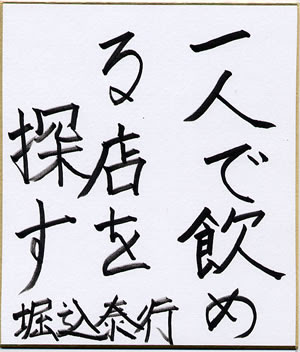 一人で飲め
る店を
探す
堀込泰行